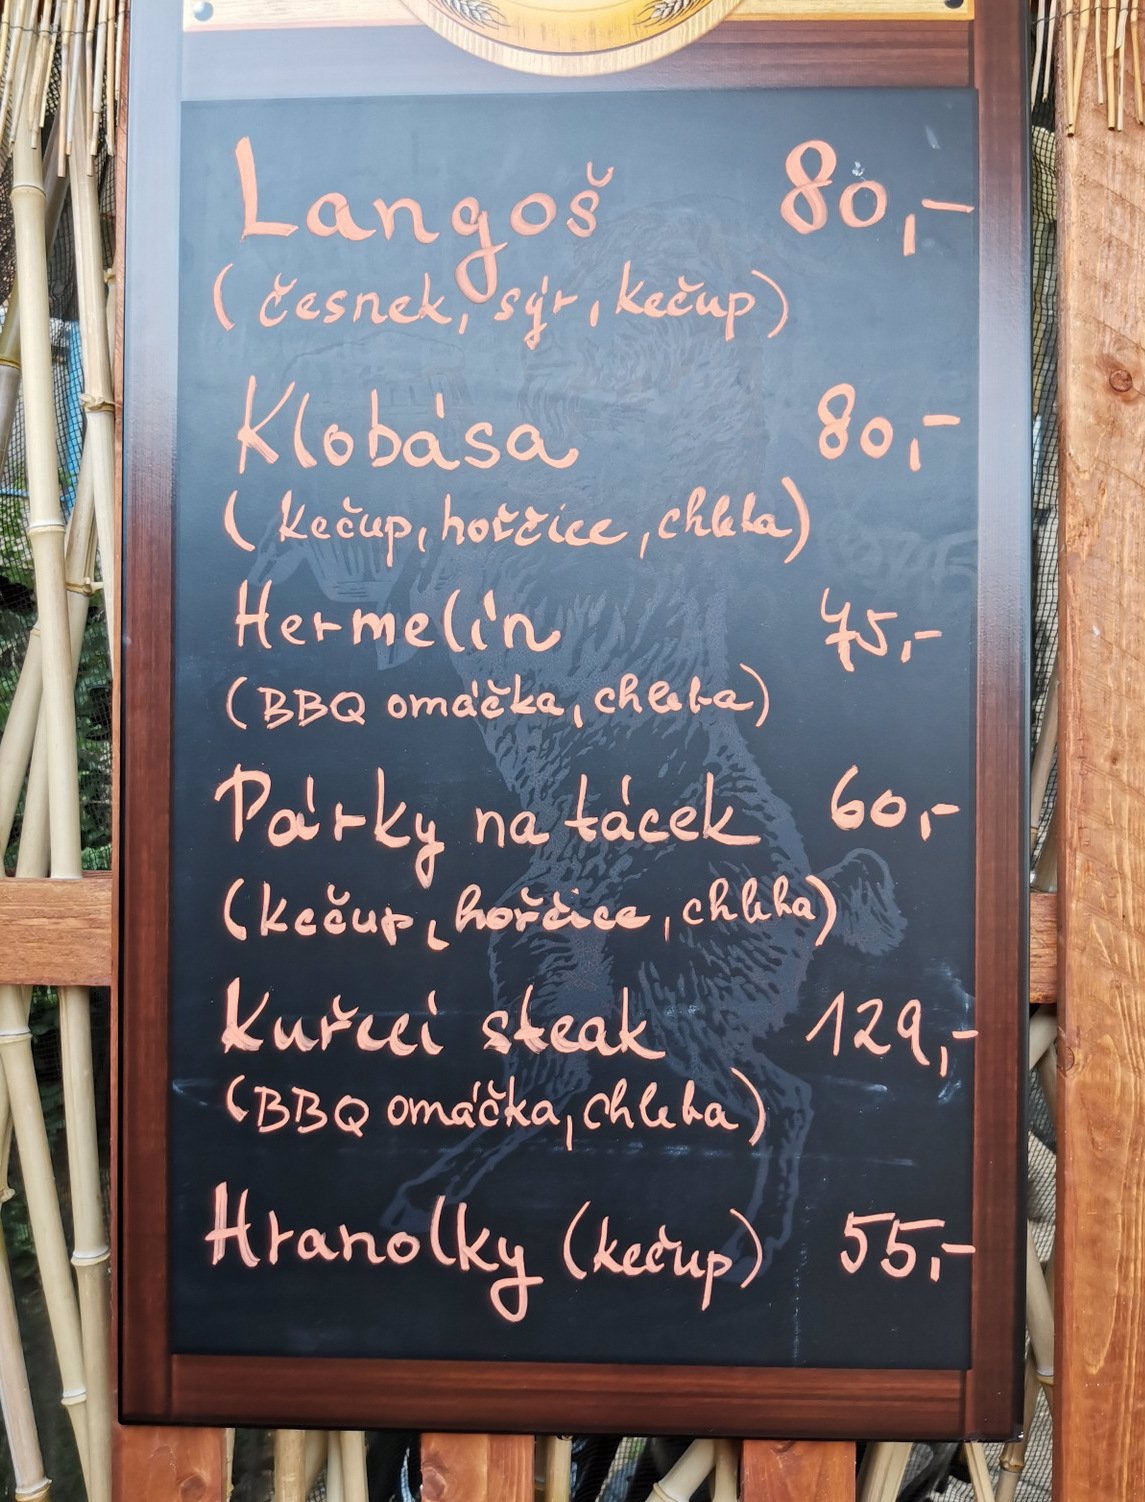 Langoš 80,-
(česnek, sýr, kečup)
Klobása 80,-
(kečup, hořčice, chleba)
Hermelín 75,-
(BBQ omáčka, chleba)
Párky na tácek 60,-
(kečup, hořčice, chleba)
Kuřecí steak 129,-
(BBQ omáčka, chleba)
Hranolky (kečup) 55,-